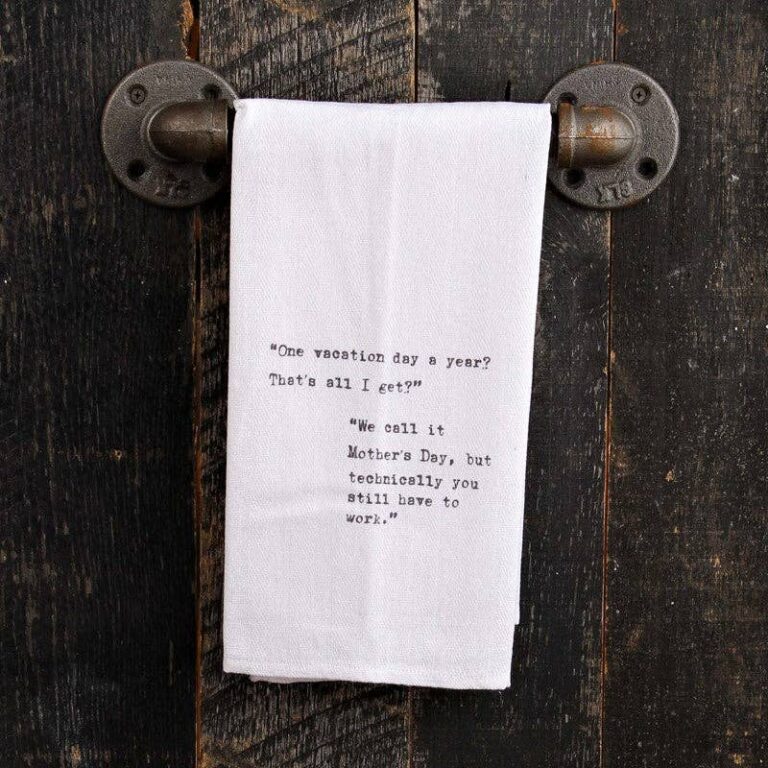 “One vacation day a year?
That's all I get?”
“We call it
Mother's Day, but
technically you
still have to
work.”